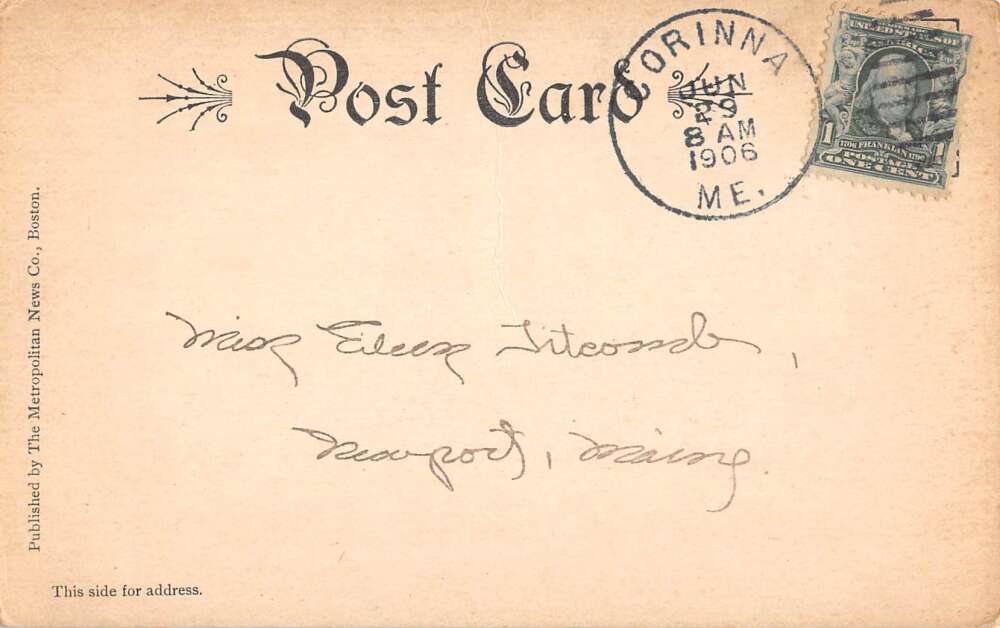 Post Card
CORINNA
JUN
29
8 AM
1906
ME.
UNITED STATES OF
AMERICA
1 1706 FRANKLIN 1790 1
POSTAGE
ONE CENT
Miss Eileen Titcomb,
Newport, Maine.
Published by The Metropolitan News Co., Boston.
This side for address.